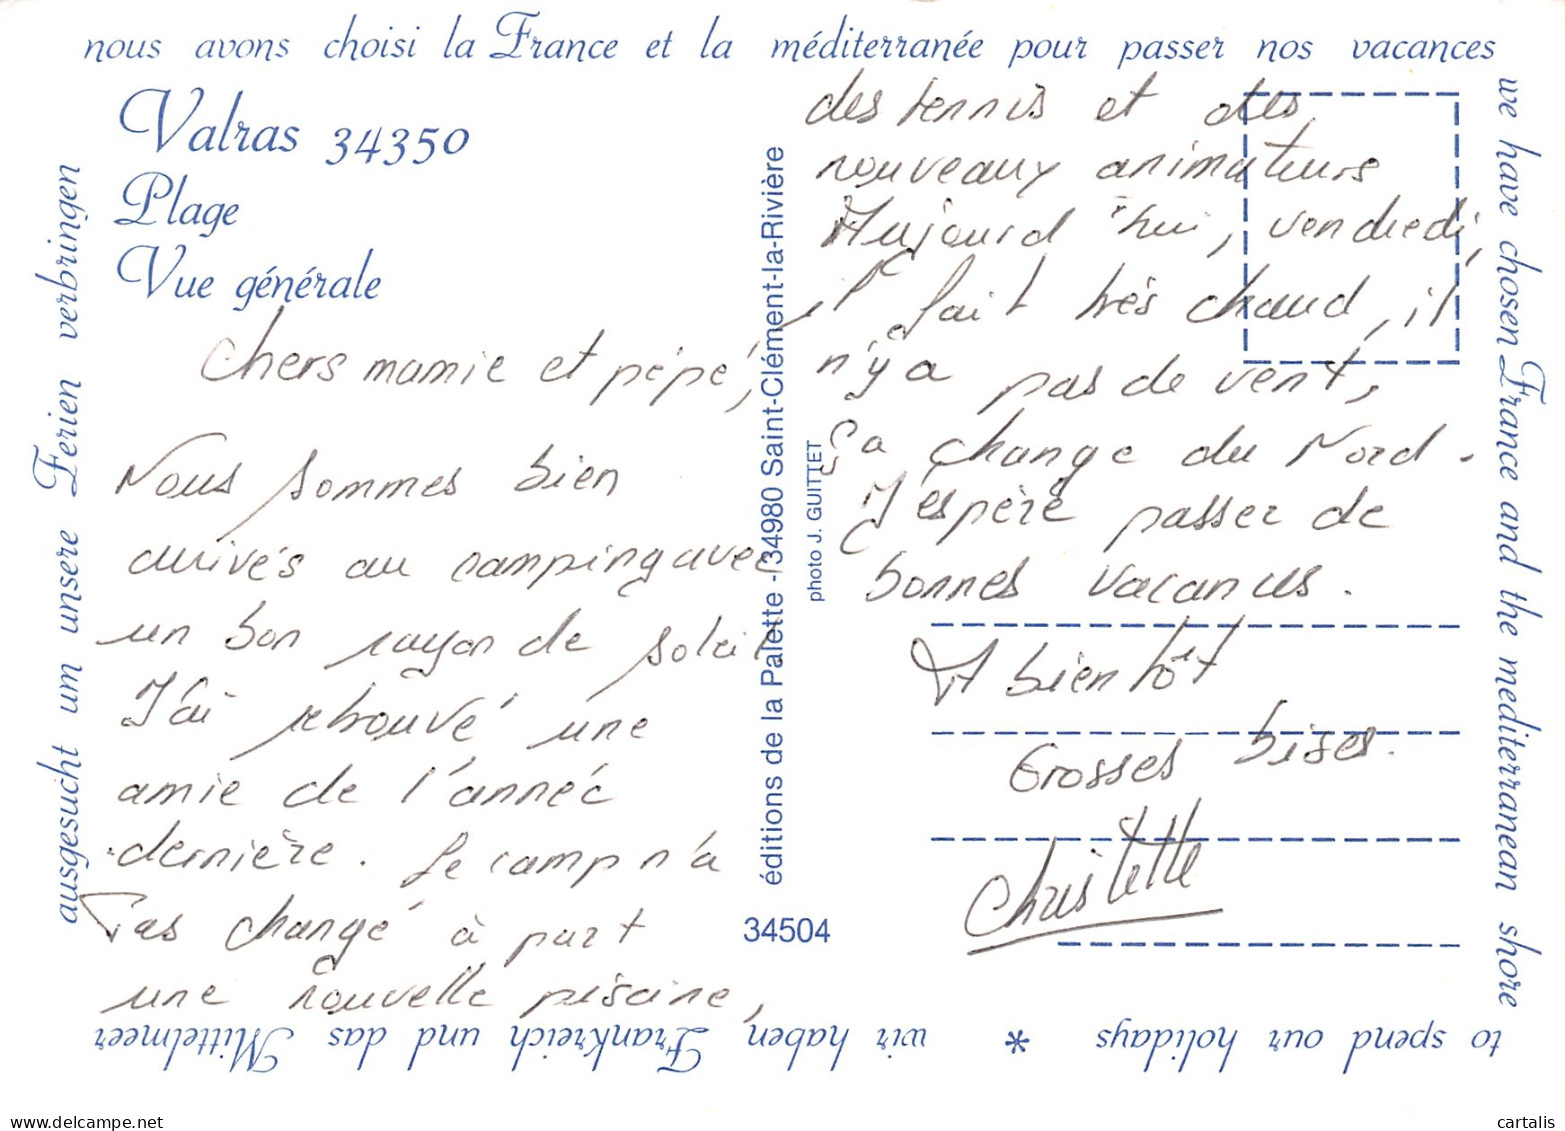 nous avons choisi la France et la méditerranée pour passer nos vacances
we have chosen France and the mediterranean shore
to spend our holidays * wir haben Frankreich und das Mittelmeer
ausgesucht um unsere Ferien verbringen
Valras 34350
Plage
Vue générale
Chers mamie et pépé,
Nous sommes bien
arrivés au camping avec
un bon rayon de soleil
J'ai retrouvé une
amie de l'année
dernière. Le camp n'a
Pas changé à part
une nouvelle piscine,
éditions de la Palette - 34980 Saint-Clément-la-Rivière
photo J. GUITTET
34504
des tennis et des
nouveaux animateurs
Aujourd'hui, vendredi,
il fait très chaud, il
n'y a pas de vent,
Ça change du Nord.
J'espère passer de
bonnes vacances.
A bientôt
Grosses bises.
Christelle
cartalis - delcampe.net